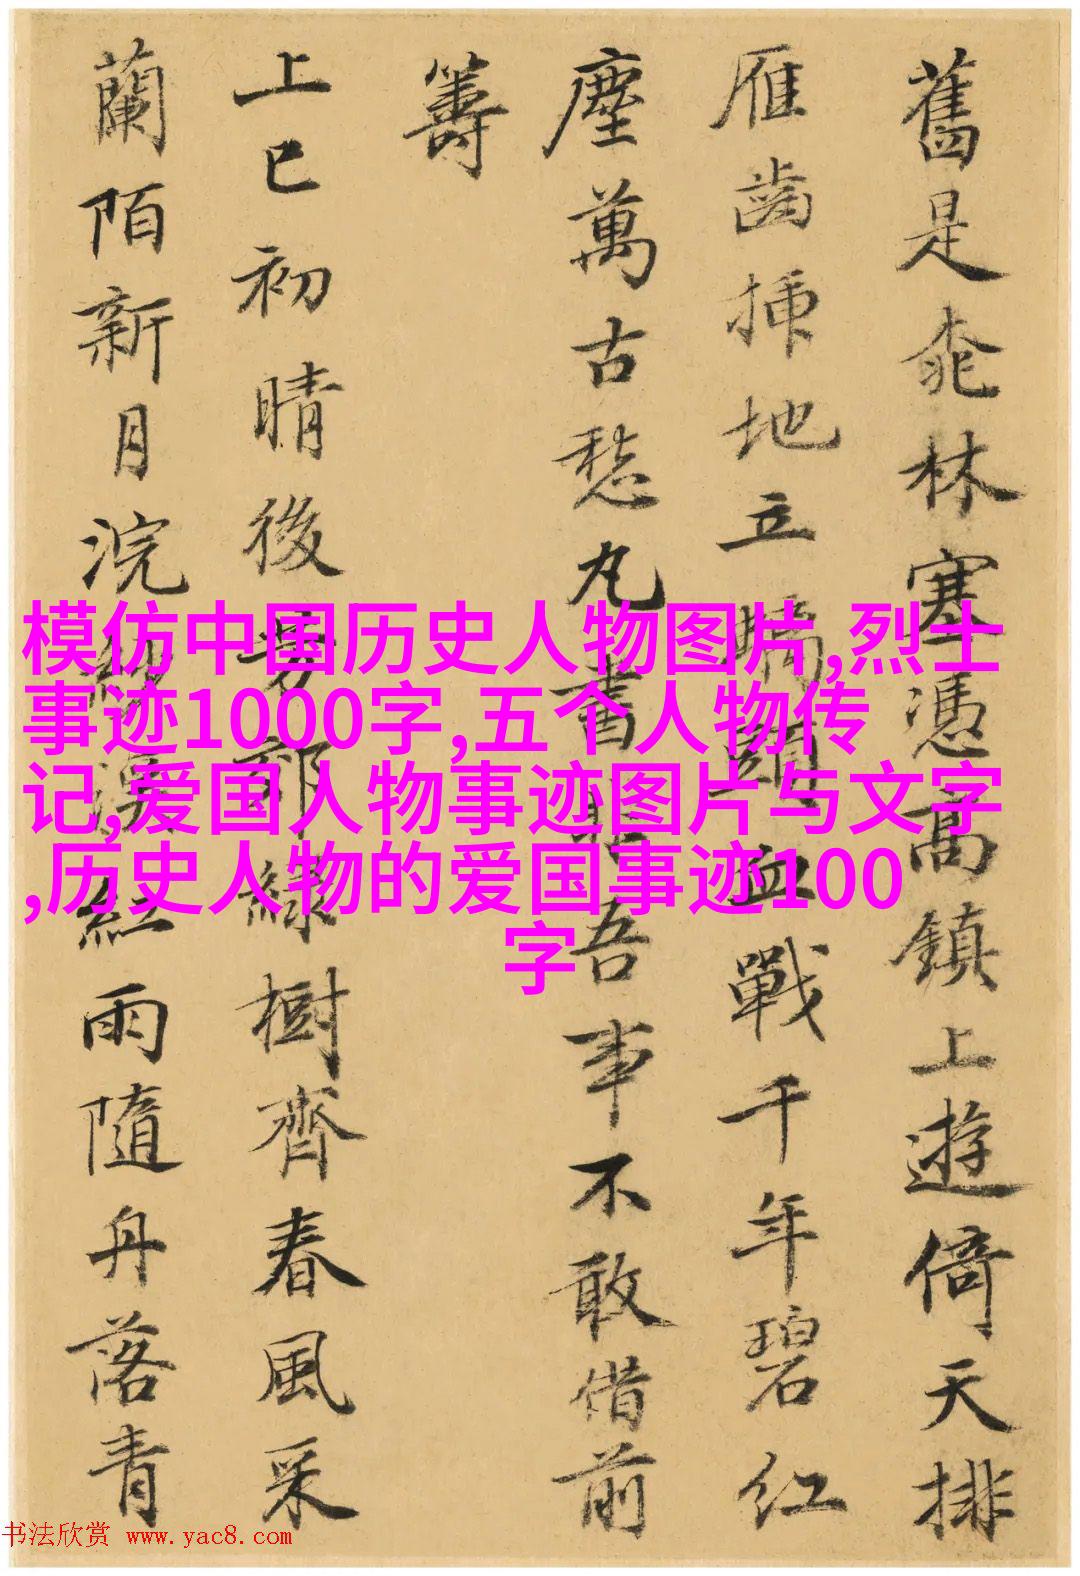 舊是桃林塞憑高鎮上遊倚天排
雁齒插地立螭頭血戰千年碧紅
塵萬古愁丸書非吾事不敢借前
籌
上巳初晴後芳郊綠樹齊春風采
蘭陌新月浣紗溪紅雨隨舟落青
模仿中国历史人物图片,烈士
事迹1000字,五个人物传
记,爱国人物事迹图片与文字
,历史人物的爱国事迹100
字
书法欣赏 www.yac8.com